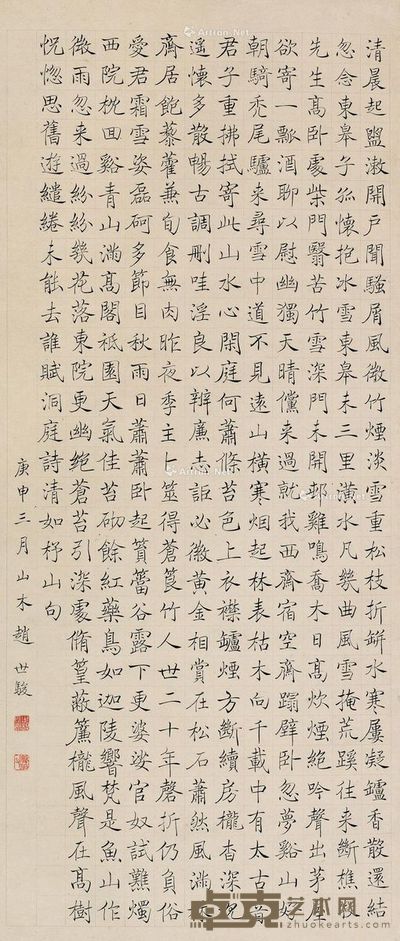 清晨起盥漱開戶聞騷屑風微竹煙淡雪重松枝折缾水寒屢凝罏香散還結
忽念東皋子孤懷抱冰雪東皋未三里潢水凡幾曲風雪掩荒蹊往來斷樵牧
先生高臥處柴門翳苦竹雪深門未開邨雞鳴喬木日高炊煙絕吟聲出茅屋
欲寄一瓢酒聊以慰幽獨天晴儻來過就我西齋宿空齋蹋壁臥忽夢谿山好
朝騎禿尾驢來尋雪中道不見遠山橫寒烟起林表枯木向千載中有太古音
君子重拂拭寄此山水心閑庭何蕭條苔色上衣襟罏煙方斷續房櫳杳深沉
遙懷多散暢古調刪哇淫良以辨廉志詎必徽黃金相賞在松石蕭然風滿林
齋居飽藜藿兼旬食無肉昨夜季主占筮得蒼筤竹人世二十年磬折仍負俗
愛君霜雪姿磊砢多節目秋雨日蕭蕭臥起篔簹谷露下更婆娑官奴試難燭
西院枕回谿青山滿高閣祗園天氣佳苔砌餘紅藥鳥如迦陵響梵是魚山作
微雨忽來過紛紛幾花落東院更幽絕蒼苔引深處脩篁蔽簾櫳風聲在高樹
怳惚思舊遊繾綣未能去誰賦洞庭詩清如杼山句
庚申三月山木趙世駿
卓克艺术网
zhuokearts.com